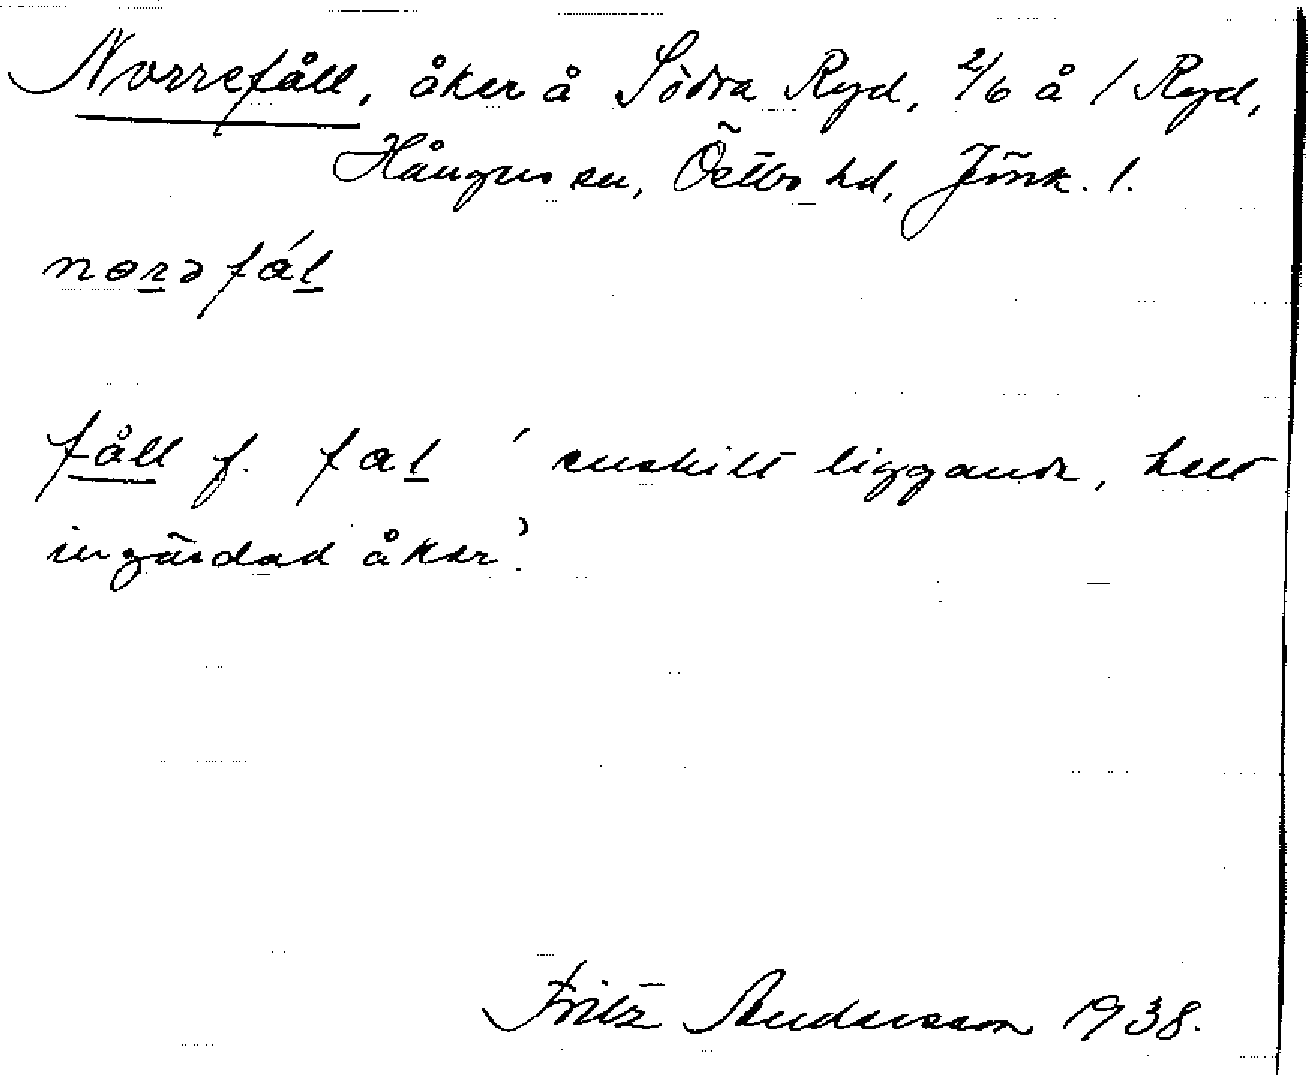 Norrefåll, åker å Södra Ryd, 2/6 å 1 Ryd,
Hångers sn, Östbo hd, Jönk. l.
norəfál
fåll f. fal 'enskilt liggande, helt
ingärdad åker'.
Fritz Andersson 1938.